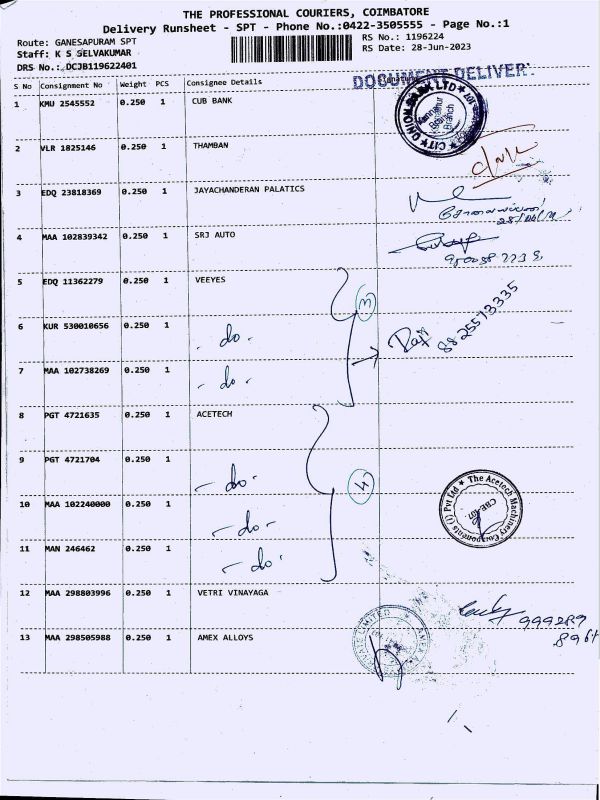 THE PROFESSIONAL COURIERS, COIMBATORE
Delivery Runsheet - SPT - Phone No.:0422-3505555 - Page No.:1
Route: GANESAPURAM SPT
RS No.: 1196224
Staff: K S SELVAKUMAR
RS Date: 28-Jun-2023
DRS No.: DCJB119622401
S No Consignment No Weight PCS Consignee Details
DOCUMENT DELIVERY
1 KMU 2545552 0.250 1 CUB BANK
CITY UNION BANK LTD
Branch
2 VLR 1825146 0.250 1 THAMBAN
3 EDQ 23818369 0.250 1 JAYACHANDERAN PALATICS
4 MAA 102839342 0.250 1 SRJ AUTO
5 EDQ 11362279 0.250 1 VEEYES
3
6 KUR 530010656 0.250 1 - do -
Raji
8825573335
7 MAA 102738269 0.250 1 - do -
8 PGT 4721635 0.250 1 ACETECH
9 PGT 4721704 0.250 1 - do -
4
The Acetech Machinery Components (I) Pvt Ltd
10 MAA 102240000 0.250 1 - do -
11 MAN 246462 0.250 1 - do -
12 MAA 298803996 0.250 1 VETRI VINAYAGA
999289
8961
13 MAA 298505988 0.250 1 AMEX ALLOYS